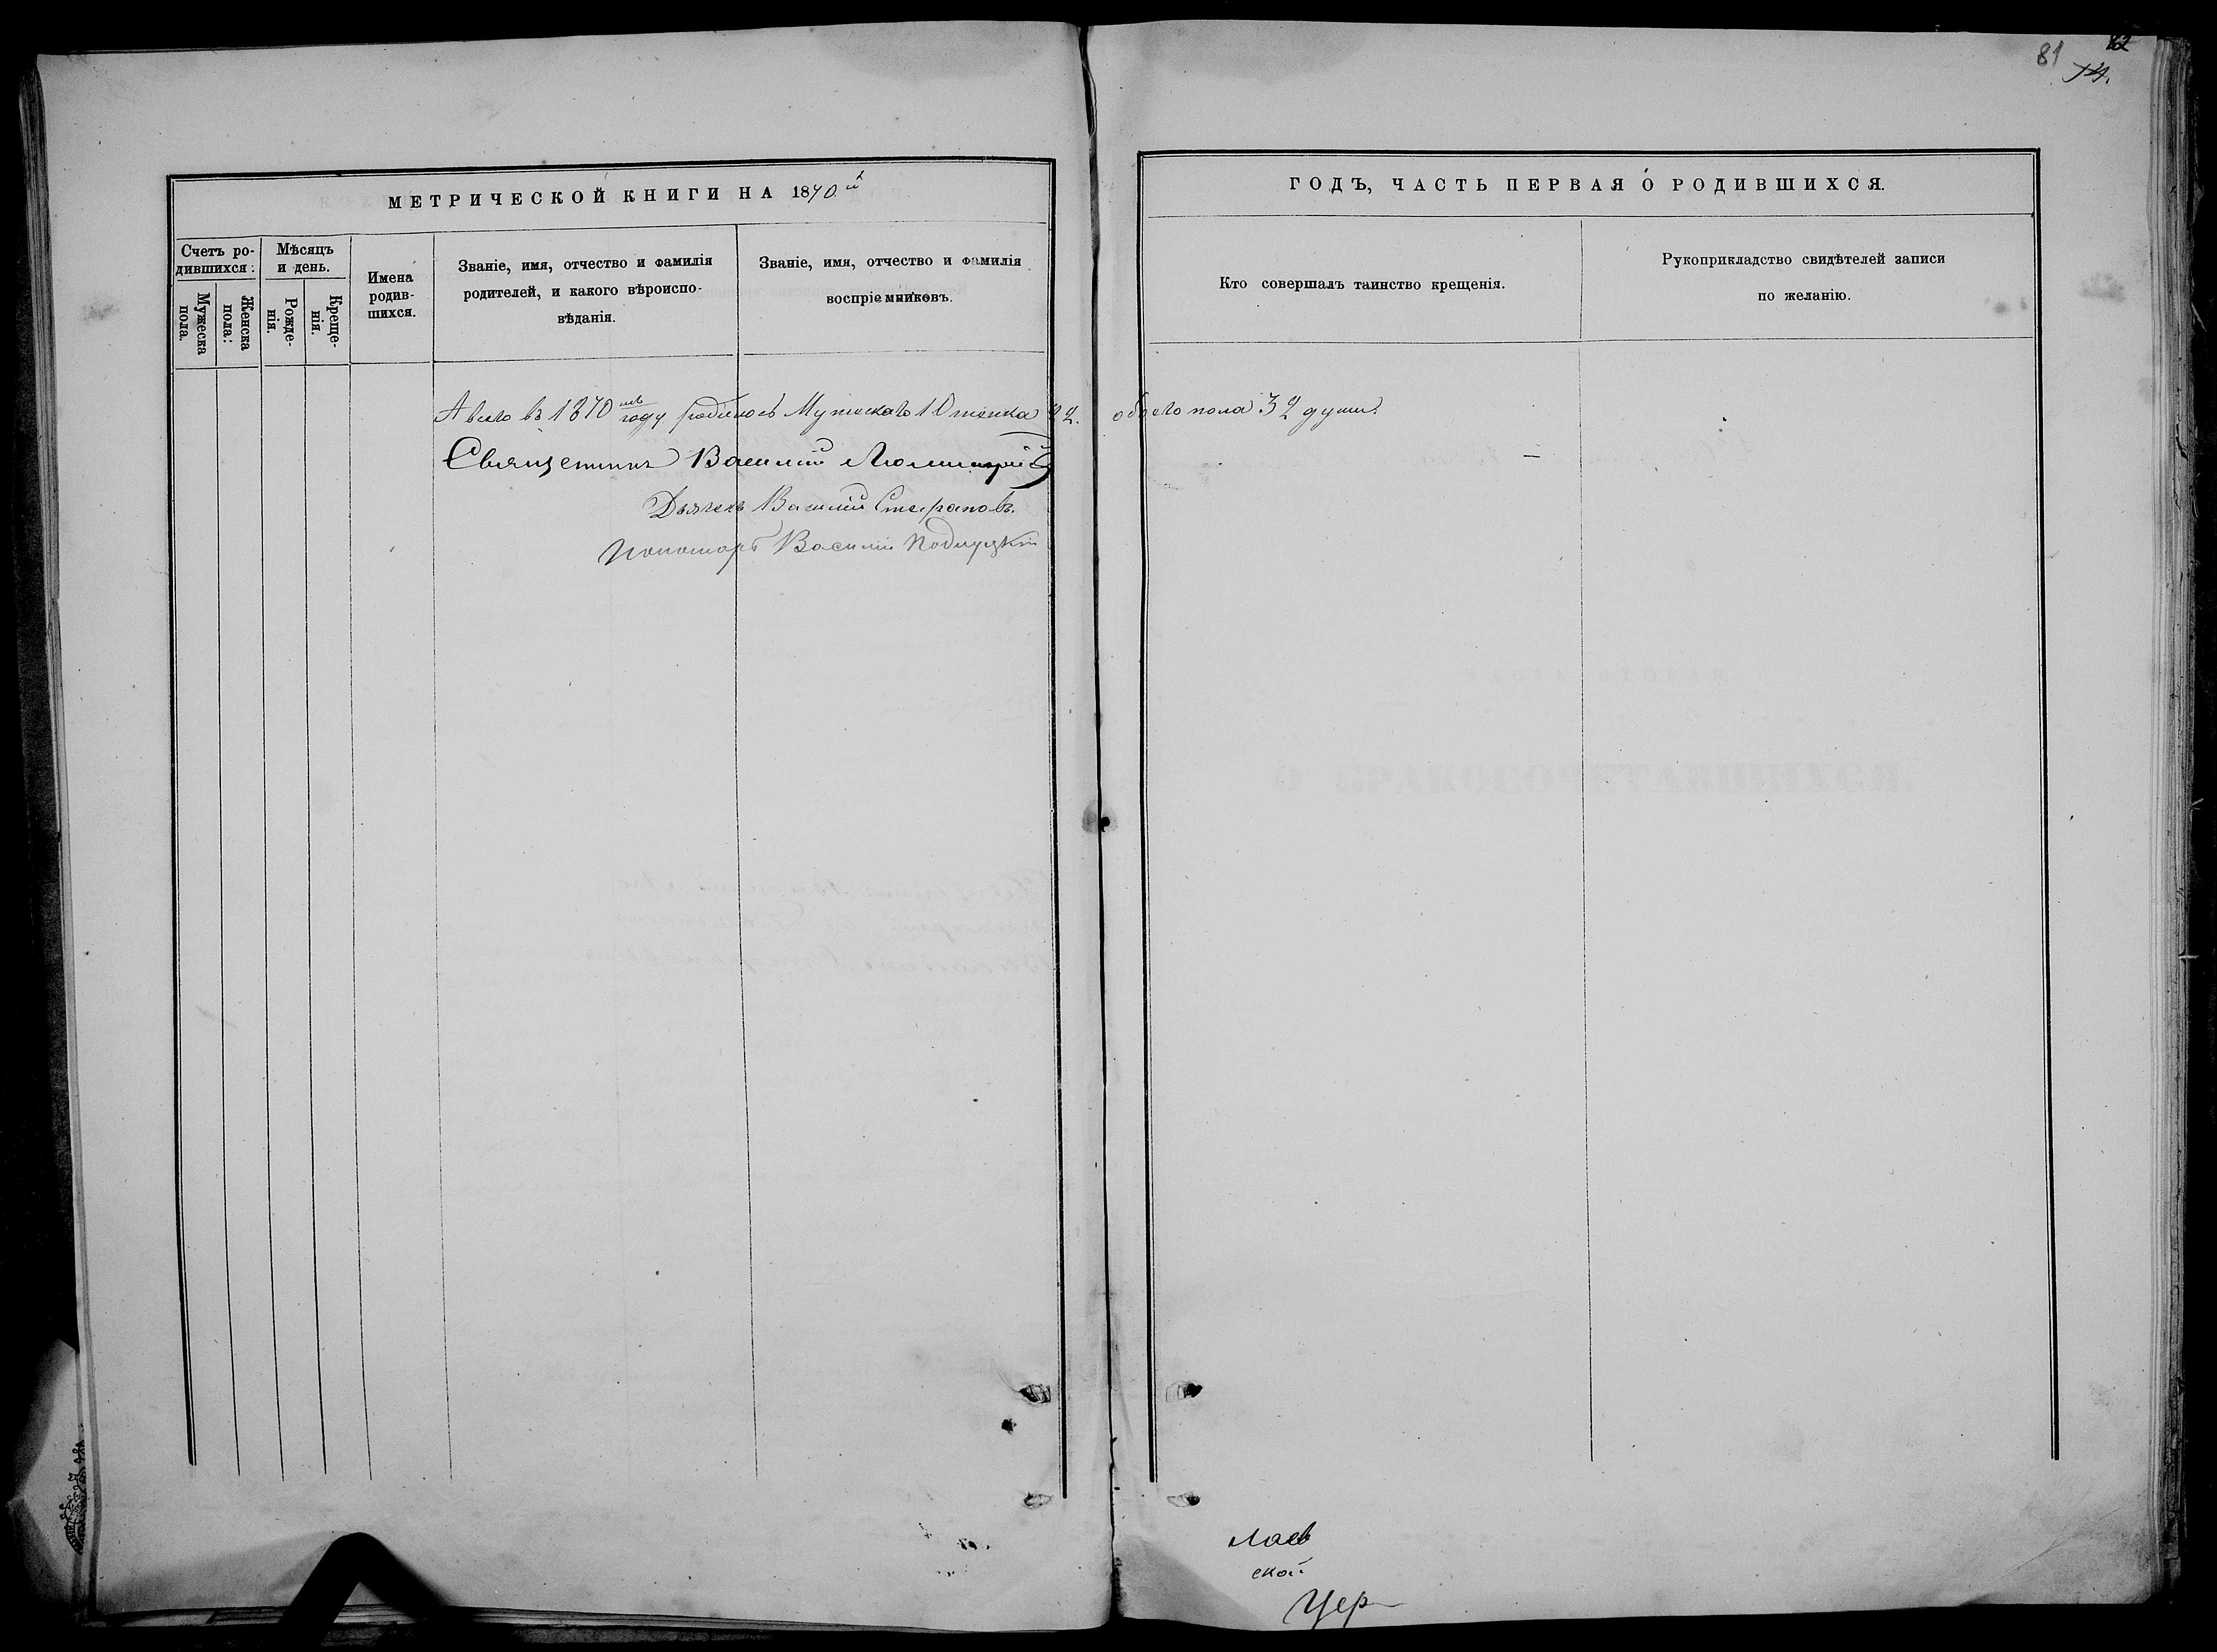 81 82
14.
МЕТРИЧЕСКОЙ КНИГИ НА 1870й
Счетъ ро-
дившихся:
Мужеска
пола.
Женска
пола.
Мѣсяцъ
и день.
Рожде-
нія.
Креще-
нія.
Имена
родив-
шихся.
Званіе, имя, отчество и фамилія
родителей, и какого вѣроиспо-
вѣданія.
Званіе, имя, отчество и фамилія
воспріемниковъ.
ГОДЪ, ЧАСТЬ ПЕРВАЯ О РОДИВШИХСЯ.
Кто совершалъ таинство крещенія.
Рукоприкладство свидѣтелей записи
по желанію.
А всего въ 1870мъ году родилось Мужескаго 10 женска 22. обоего пола 32 души.
Священникъ Василий
Дьячекъ Василій Стефановъ.
Пономарь Василій
лаев
ской
Цер